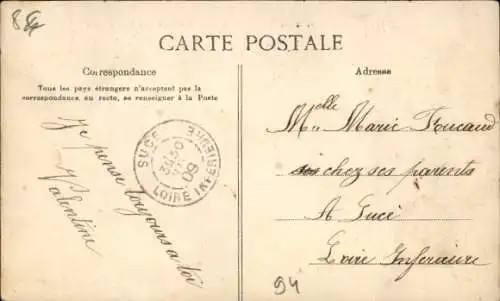 84
CARTE POSTALE
Correspondance
Tous les pays étrangers n'acceptent pas la
correspondance au recto, se renseigner à la Poste
Je pense toujours a toi
Valentine
SUCÉ
3E
30
09
LOIRE INFERIEURE
Adresse
Melle Marie Foucaud
chez ses parents
A Sucé
Loire Inferieure
94